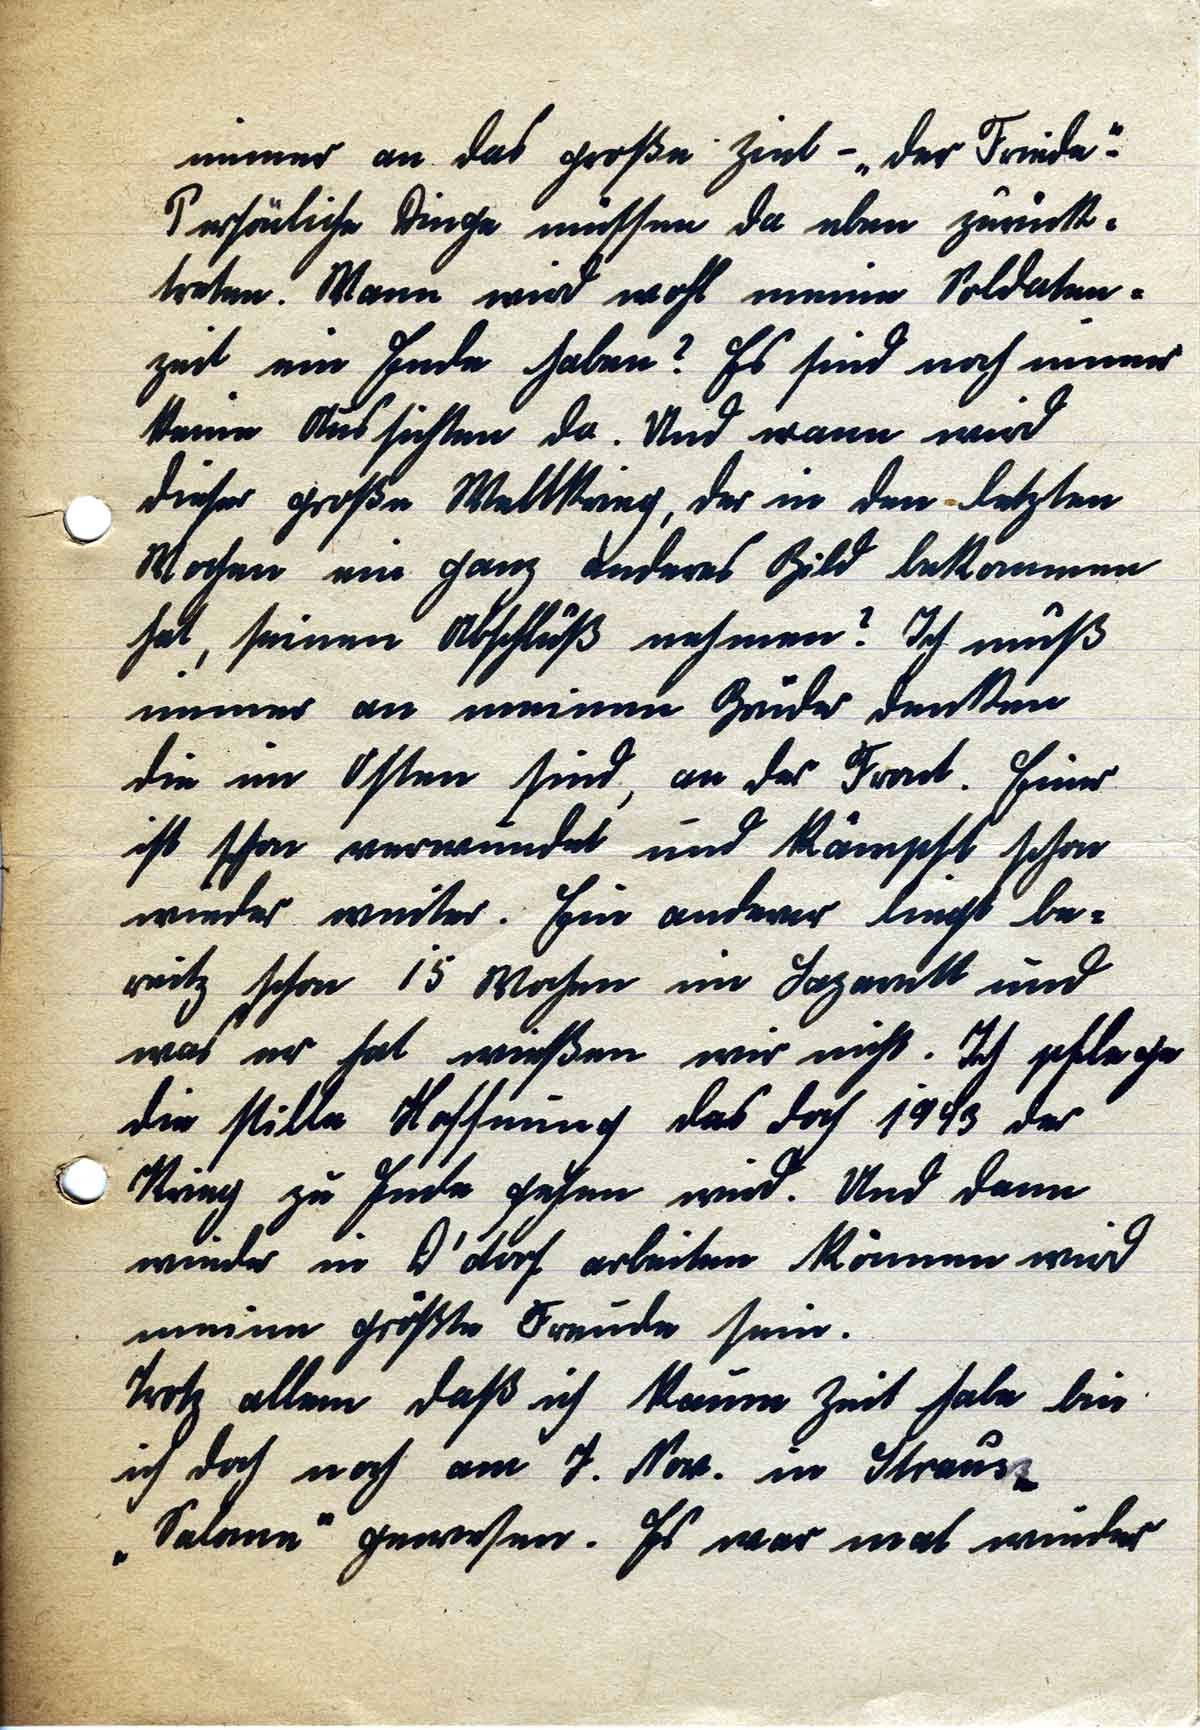 immer an das große Ziel - „der Friede".
Persönliche Dinge müssen da eben zurück-
treten. Wann wird wohl meine Soldaten-
zeit ein Ende haben? Es sind noch immer
keine Aussichten da. Und wann wird
dieser große Weltkrieg, der in den letzten
Wochen ein ganz anderes Bild bekommen
hat, seinen Abschluß nehmen? Ich muß
immer an meinen Brüder denken
die im Osten sind, an der Front. Einer
ist schon verwundet und kämpft schon
wieder weiter. Ein anderer liegt be-
reitz schon 15 Wochen im Lazarett und
was er hat wießen wir nicht. Ich pflege
die stille Hoffnung das doch 1943 der
Krieg zu Ende gehen wird. Und dann
wieder in D'dorf arbeiten können wird
meine größte Freude sein.
Trotz allem daß ich kaum Zeit habe bin
ich doch noch am 7. Nov. in Strauss
„Salome" gewesen. Es war mal wieder